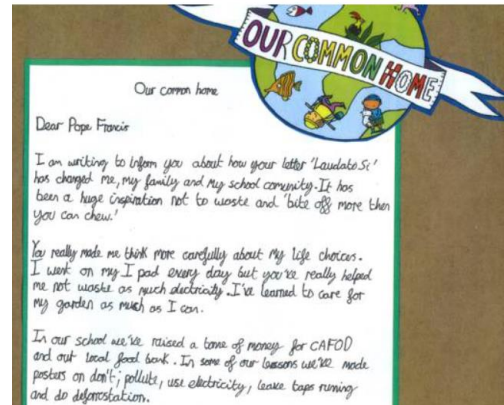 OUR COMMON HOME
Our common home
Dear Pope Francis
I am writing to inform you about how your letter 'Laudato Si'
has changed me, my family and my school comunity. It has
been a huge inspiration not to waste and 'bite off more then
you can chew.'
You really made me think more carefully about my life choices.
I went on my I pad every day but you've really helped
me not waste as much electricity. I've learned to care for
my garden as much as I can.
In our school we've raised a tone of money for CAFOD
and out local food bank. In some of our lessons we've made
posters on don't; pollute, use electricity, leave taps runing
and do deforostation.